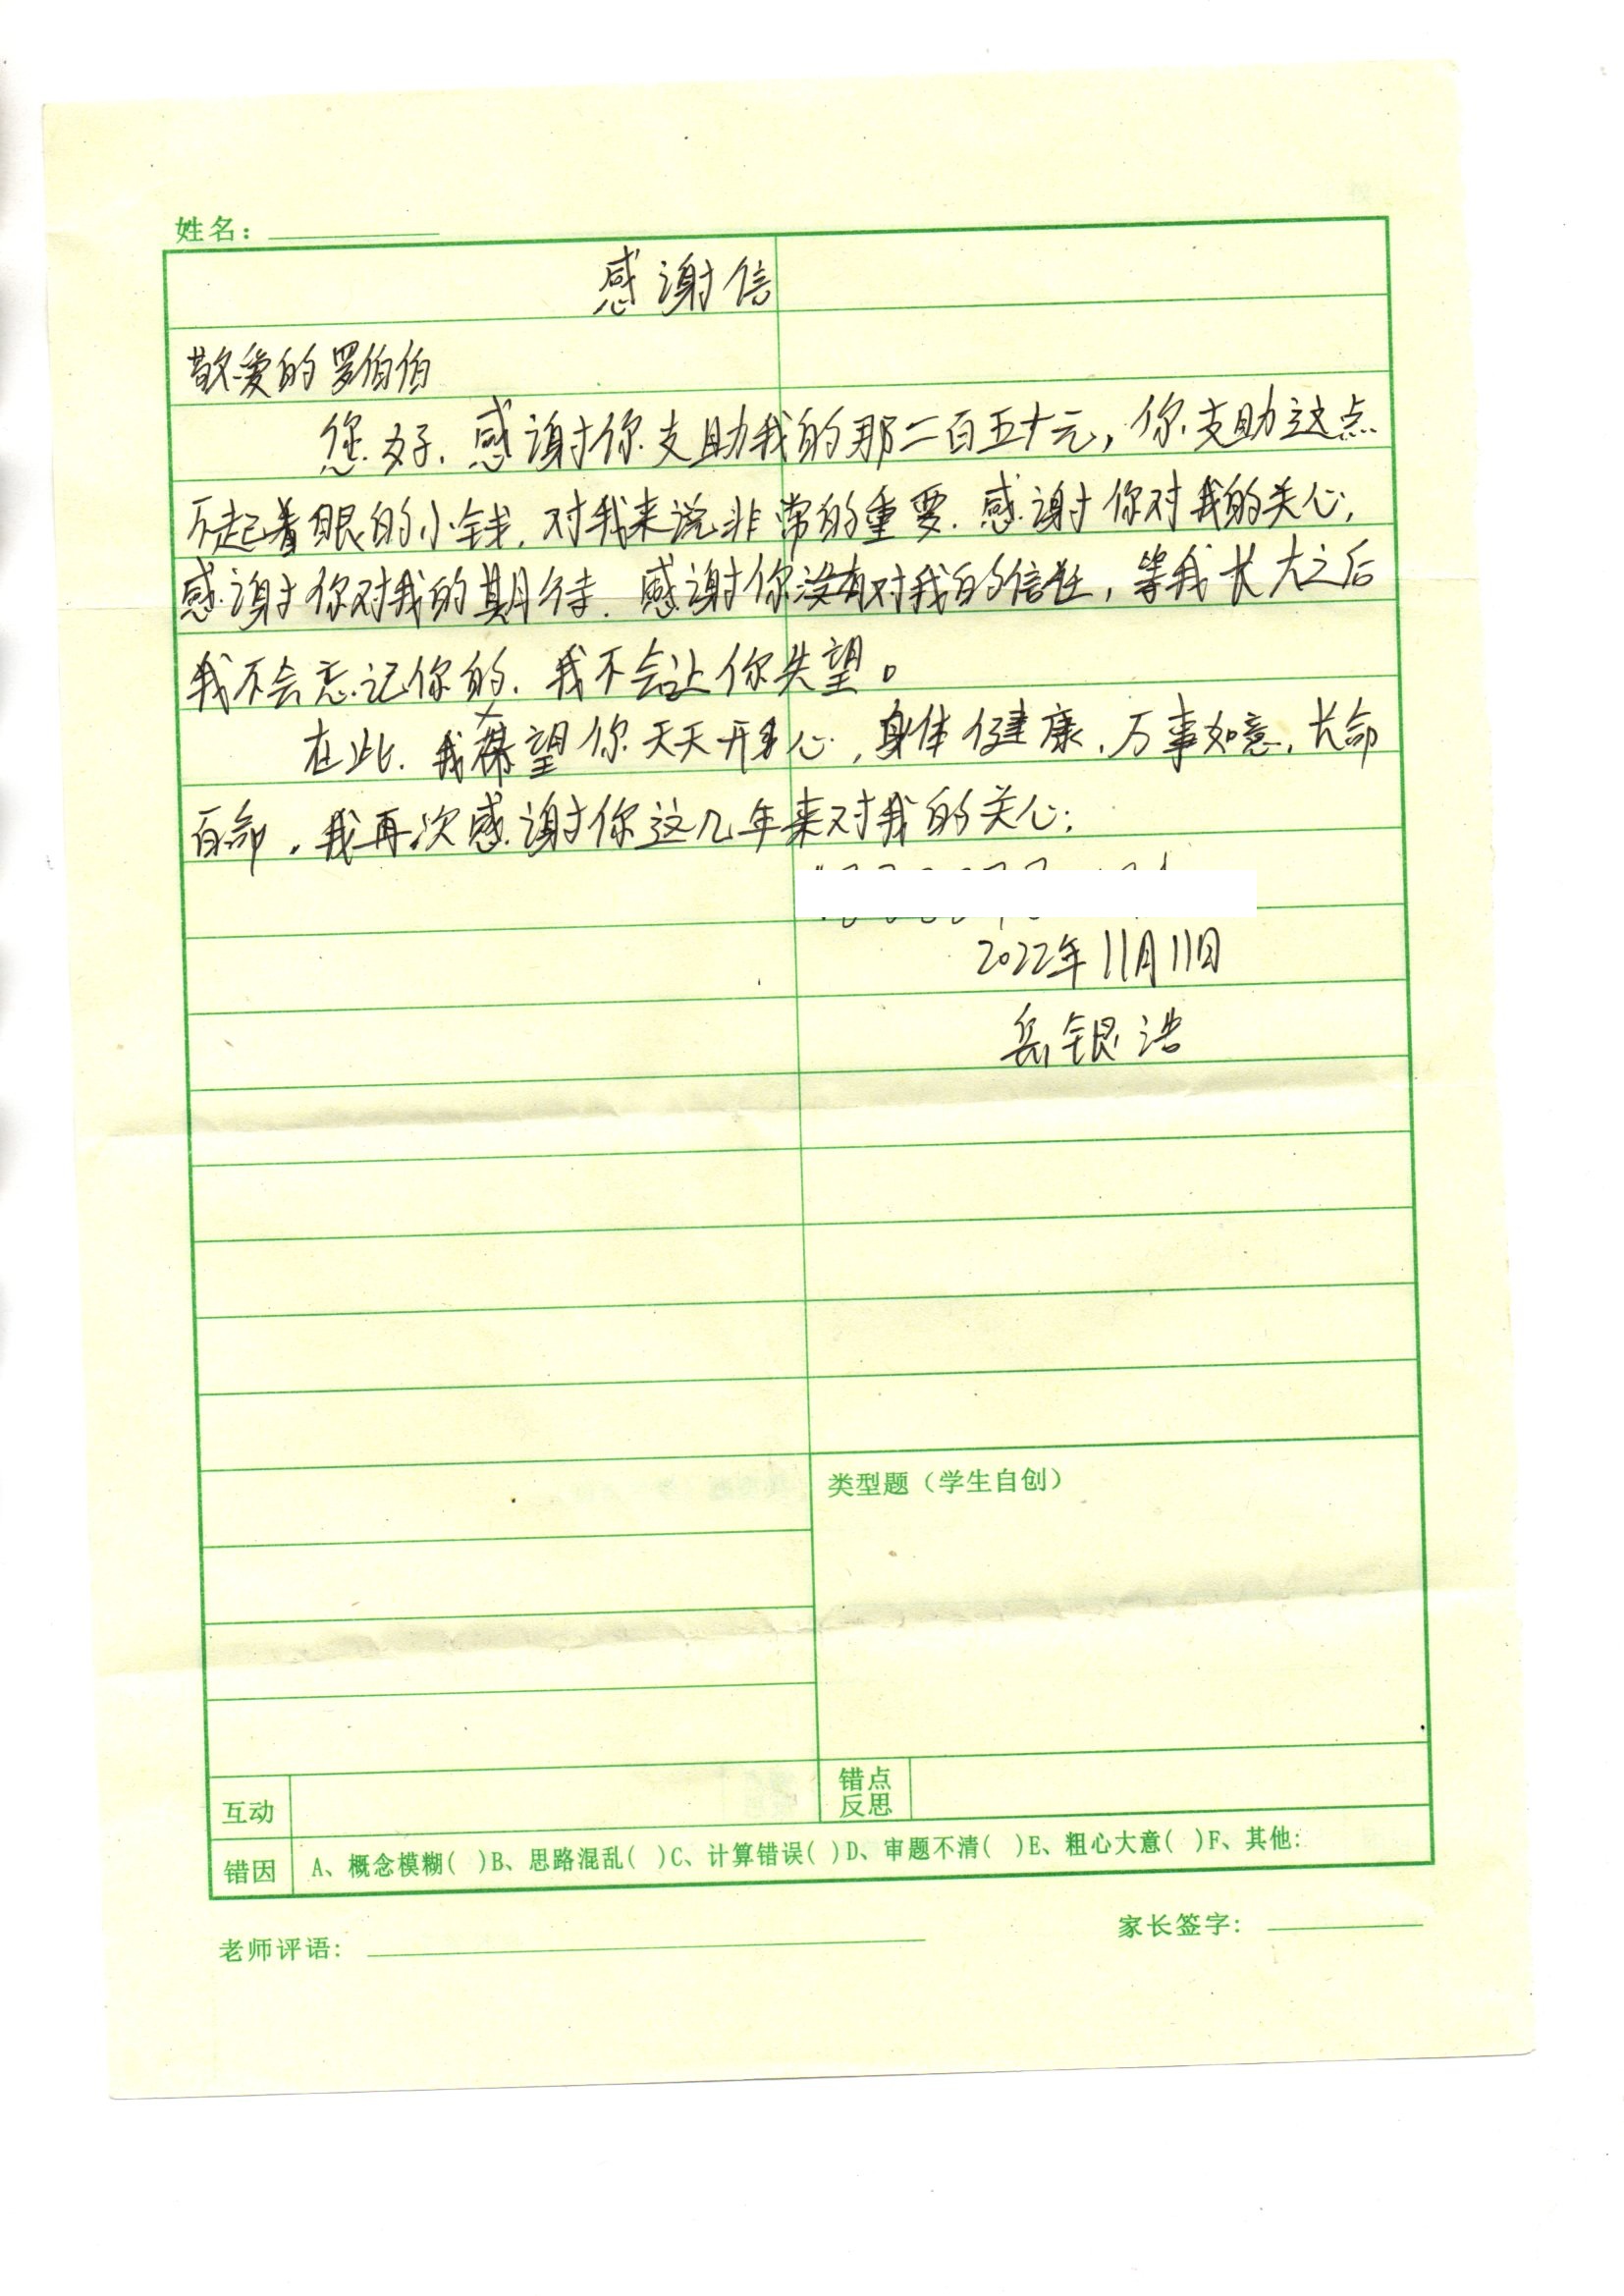 姓名:
感谢信
敬爱的罗伯伯
您好.感谢你支助我的那二百五十元,你支助这点
不起着眼的小钱.对我来说非常的重要.感谢你对我的关心,
感谢你对我的期待.感谢你没有对我的信任,等我长大之后
我不会忘记你的.我不会让你失望。
在此.我希望你天天开心,身体健康.万事如意.长命
百命.我再次感谢你这几年来对我的关心;
2022年11月11日
岳银浩
类型题(学生自创)
互动
错点
反思
错因 A、概念模糊( )B、思路混乱( )C、计算错误( )D、审题不清( )E、粗心大意( )F、其他:
老师评语: 家长签字: